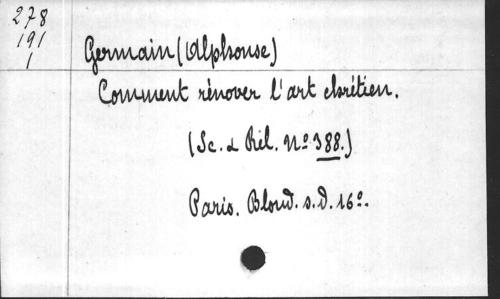 278
191
1
Germain (Alphonse)
Comment rénover l'art chrétien.
(Sc. & Rél. No 388.)
Paris. Bloud. s.d. 16o.